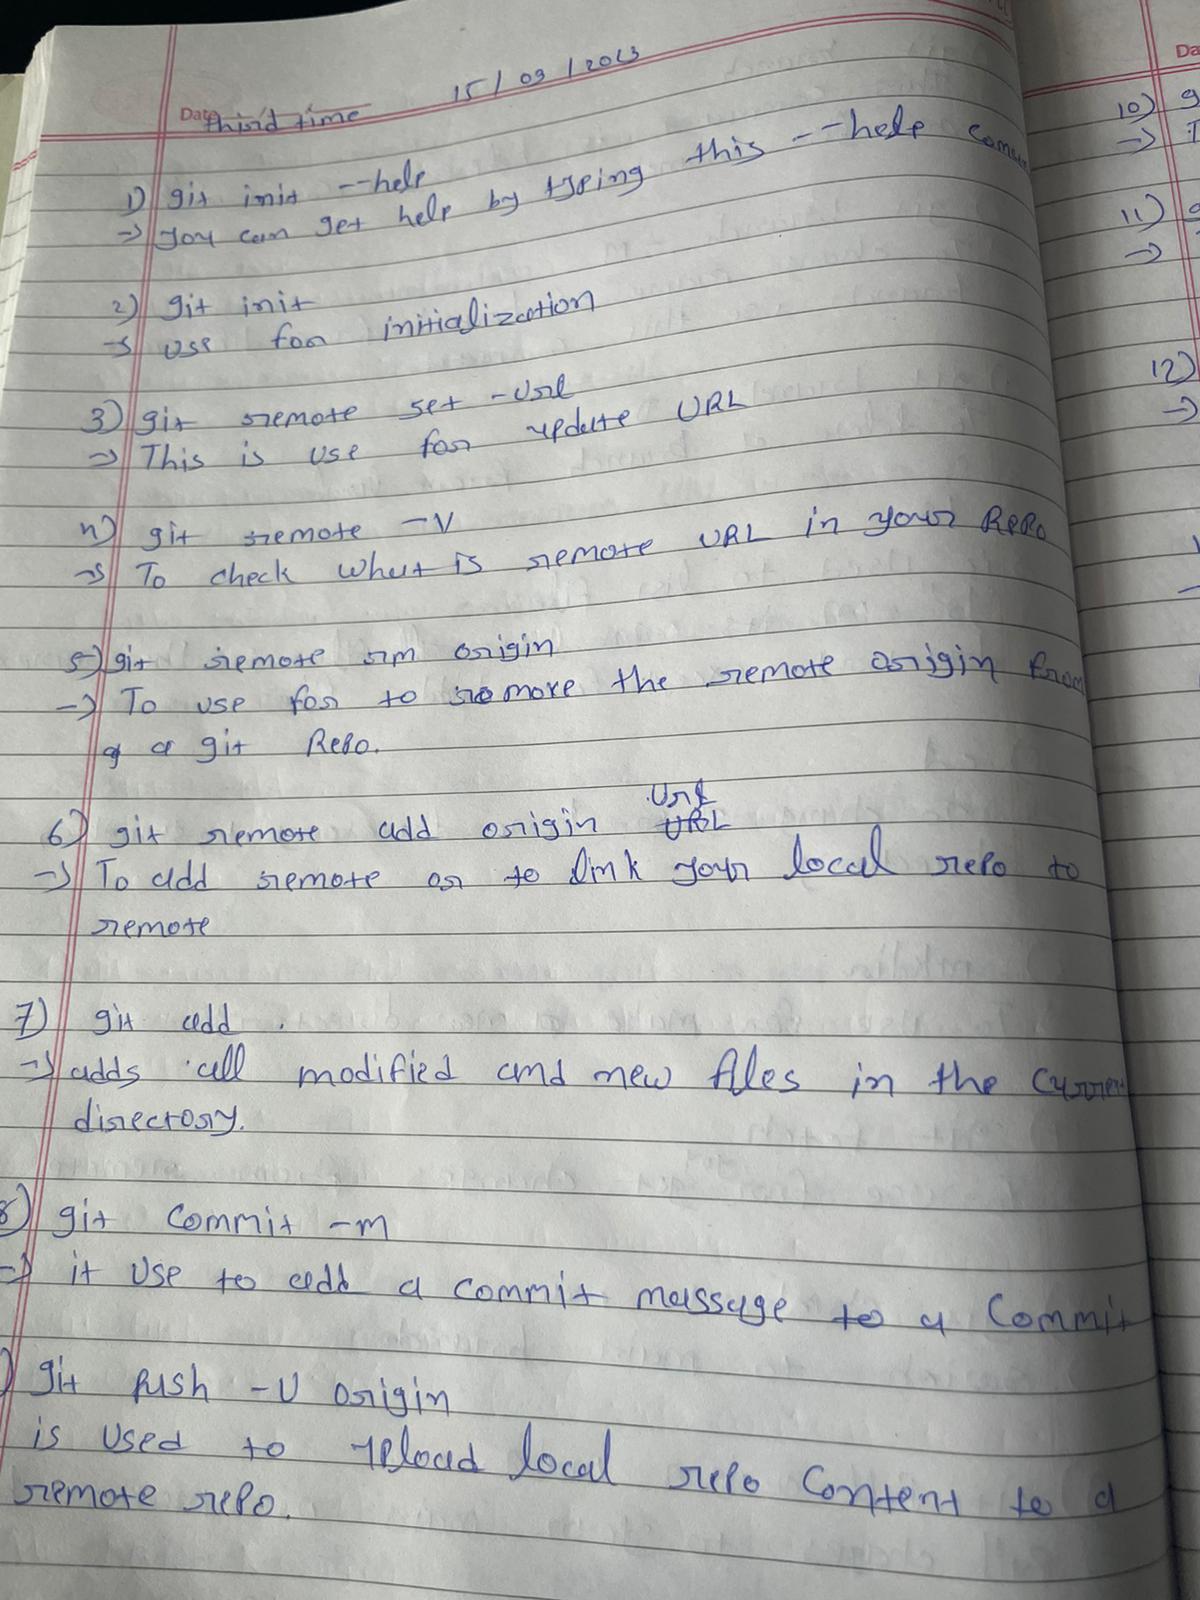 Date
third time
15/09/2023
1) git init --help
→ you can get help by typing this --help
2) git init
→ use for initialization
3) git remote set -url
→ This is use for update URL
4) git remote -v
→ To check what is remote URL in your Repo
5) git remote rm origin
→ To use for to remove the remote origin from
a git Repo.
url
6) git remote add origin URL
→ To add remote or to link your local repo to
remote
7) git add .
→ adds all modified and new files in the curren
directory.
8) git commit -m
→ it use to add a commit massage to a Commit
) git push -u origin
is used to upload local repo content to a
remote repo.
Da
10) g
→ T
11) g
→
12)
→